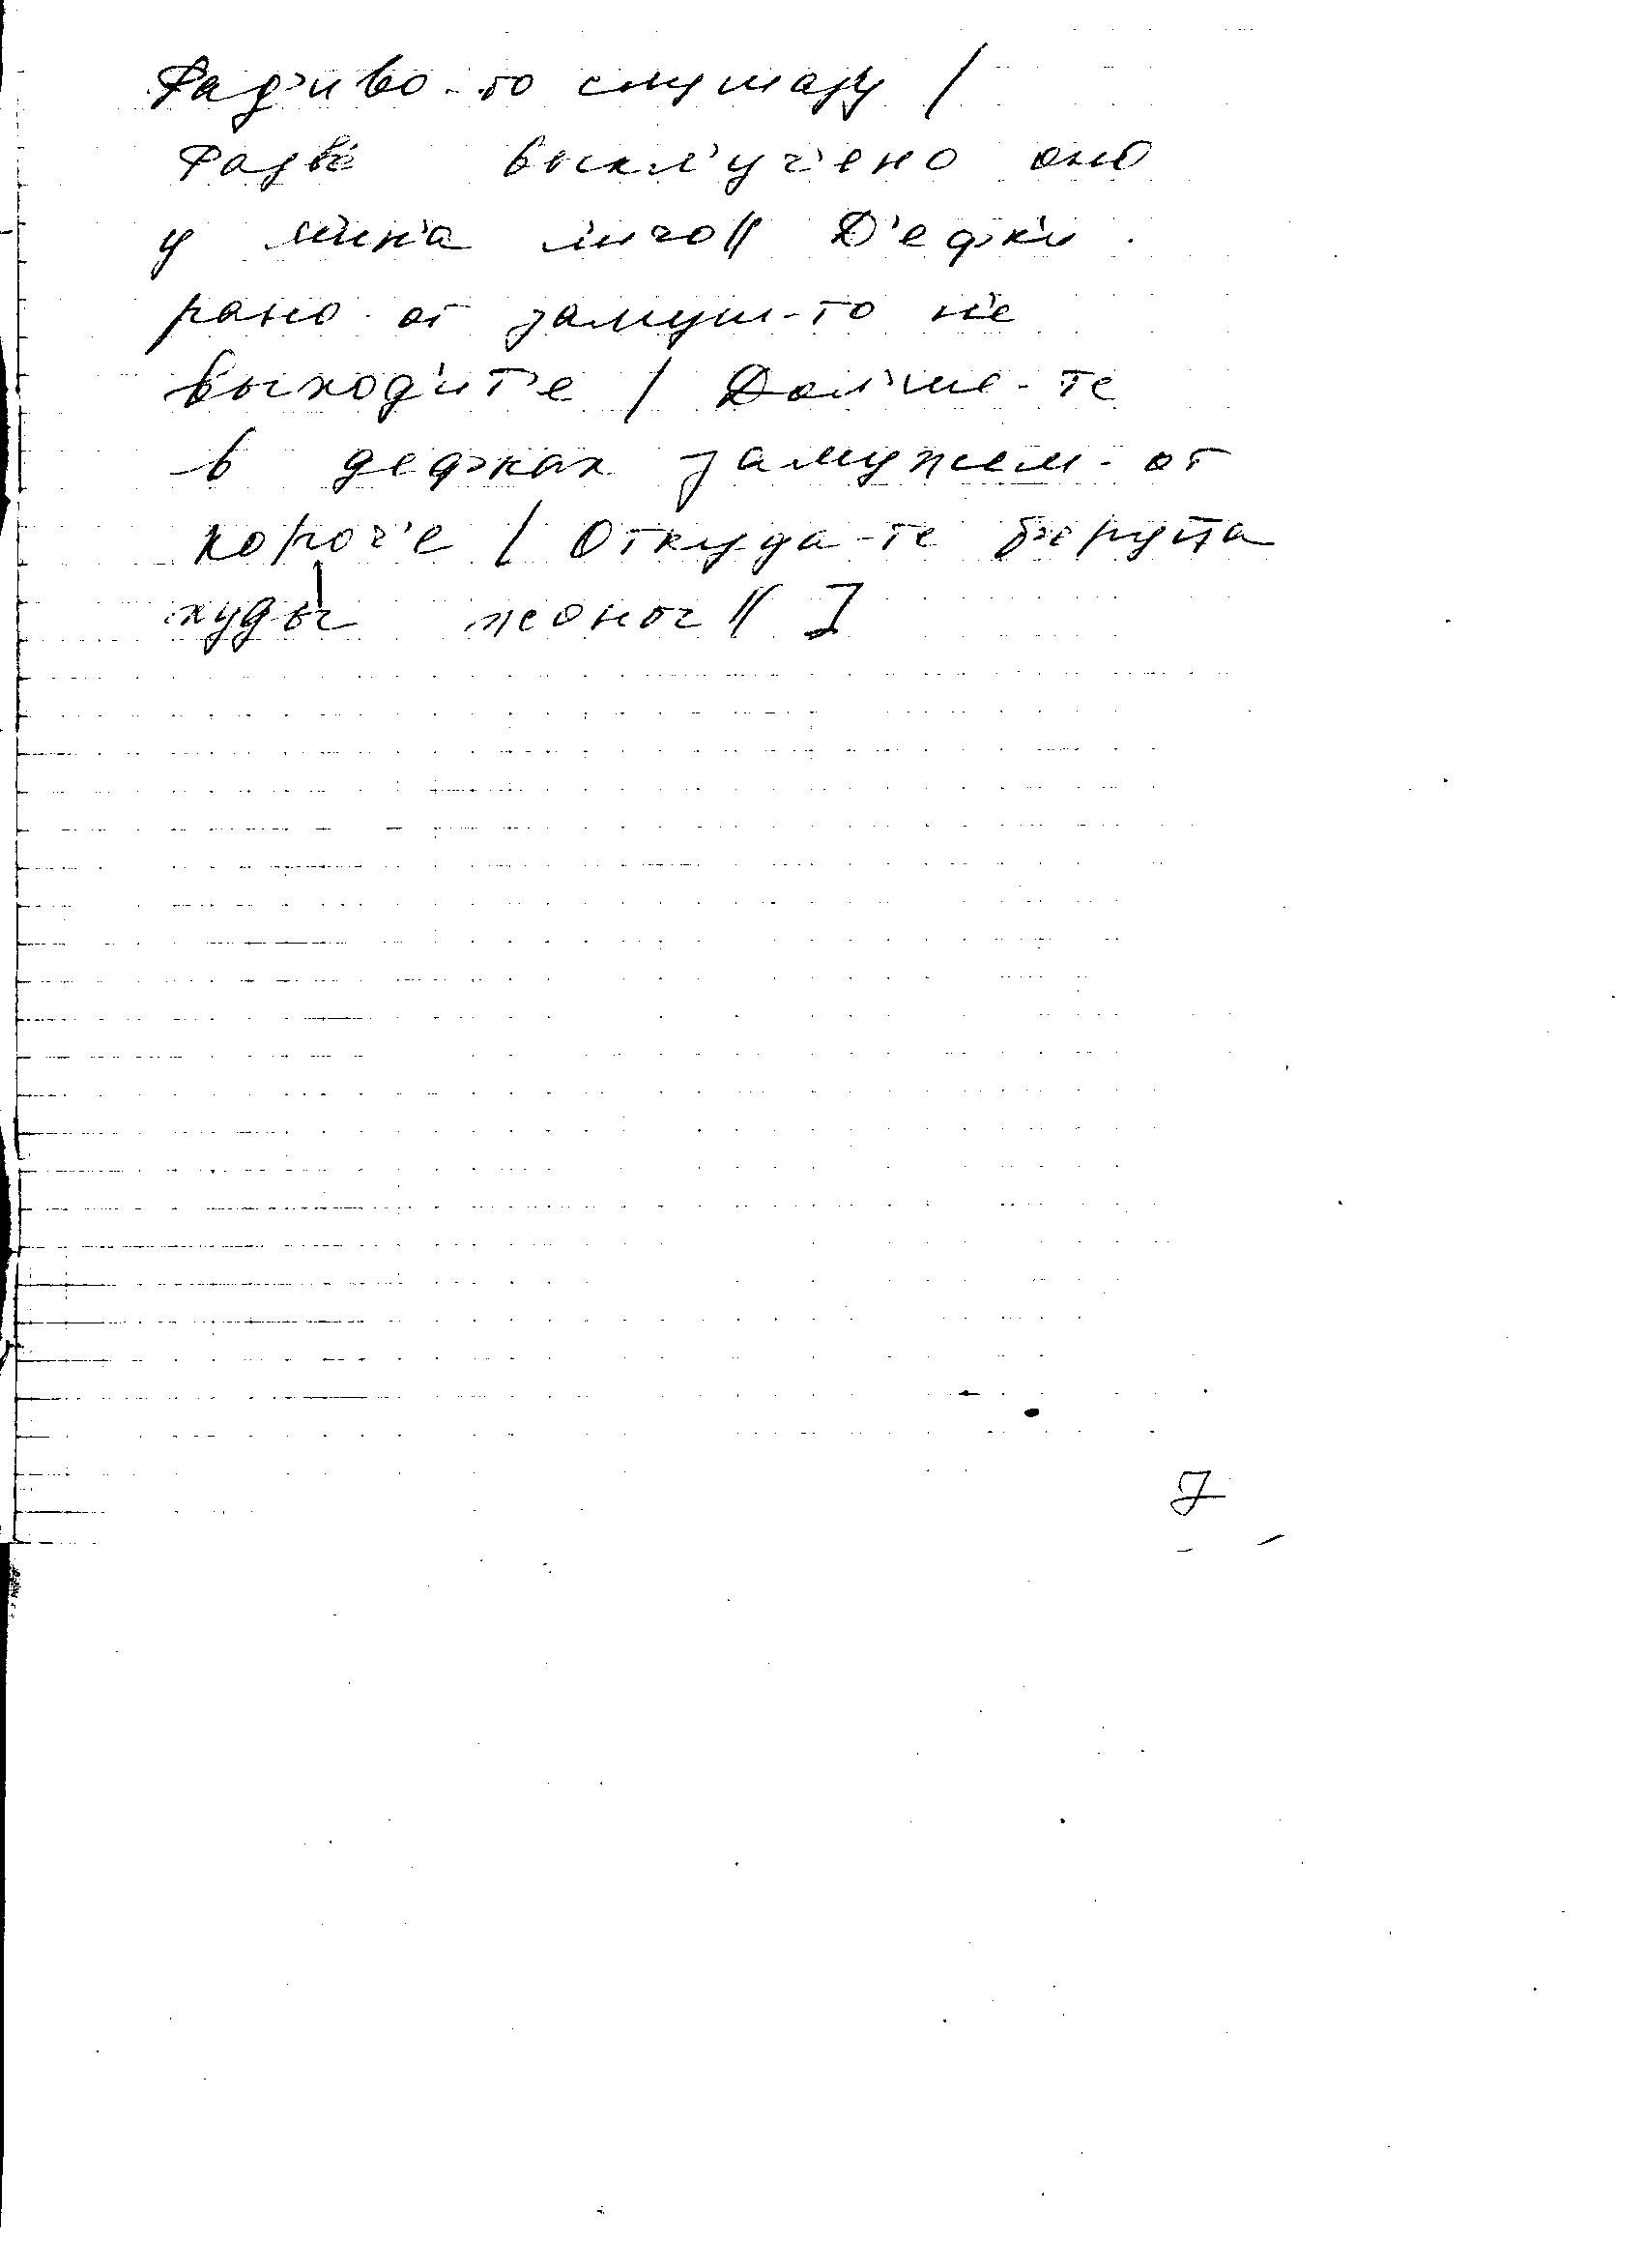 Рад'иво-то слушаjу /
Разв'е выкл'уч'ено оно
у м'ин'а ли што // Д'ефк'и
рано-от замуш-то н'е
выход'ит'е / Дол'ше-те
в дефках замужем-от
короч'е / Откуда-те б'еруца
худы жоноч //]
7